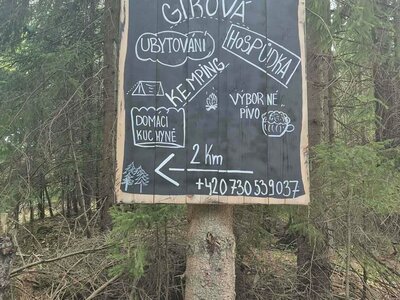 GÍROVÁ
UBYTOVÁNÍ
HOSPŮDKA
KEMPING..
VÝBORNÉ..
PIVO
DOMACÍ
KUCHYNĚ
2 Km
+420730539037